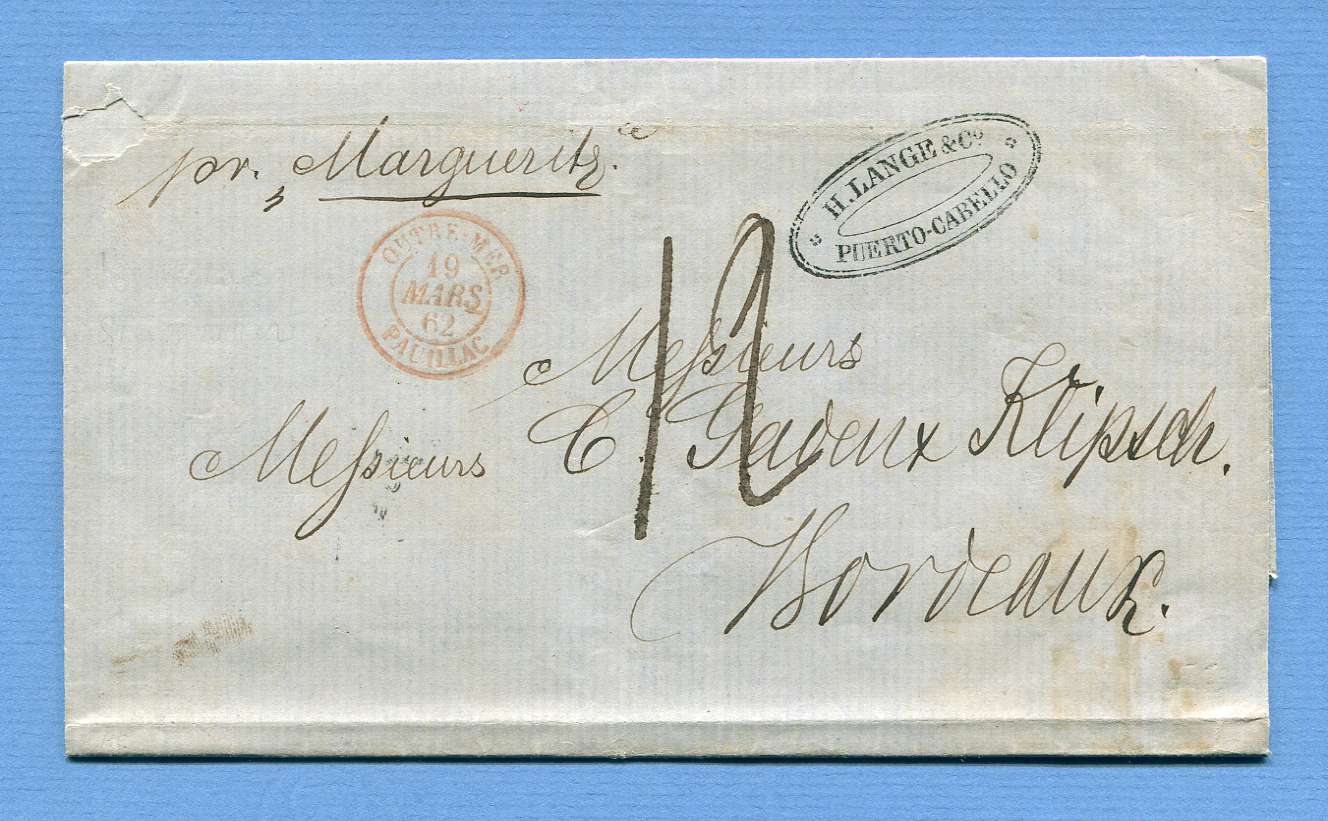 pr. Marguerite.
H. LANGE & Co.
PUERTO-CABELLO
OUTRE-MER
19
MARS
62
PAUILLAC
12
Messieurs
C. Gadeux Klipsch.
Messieurs
Bordeaux.